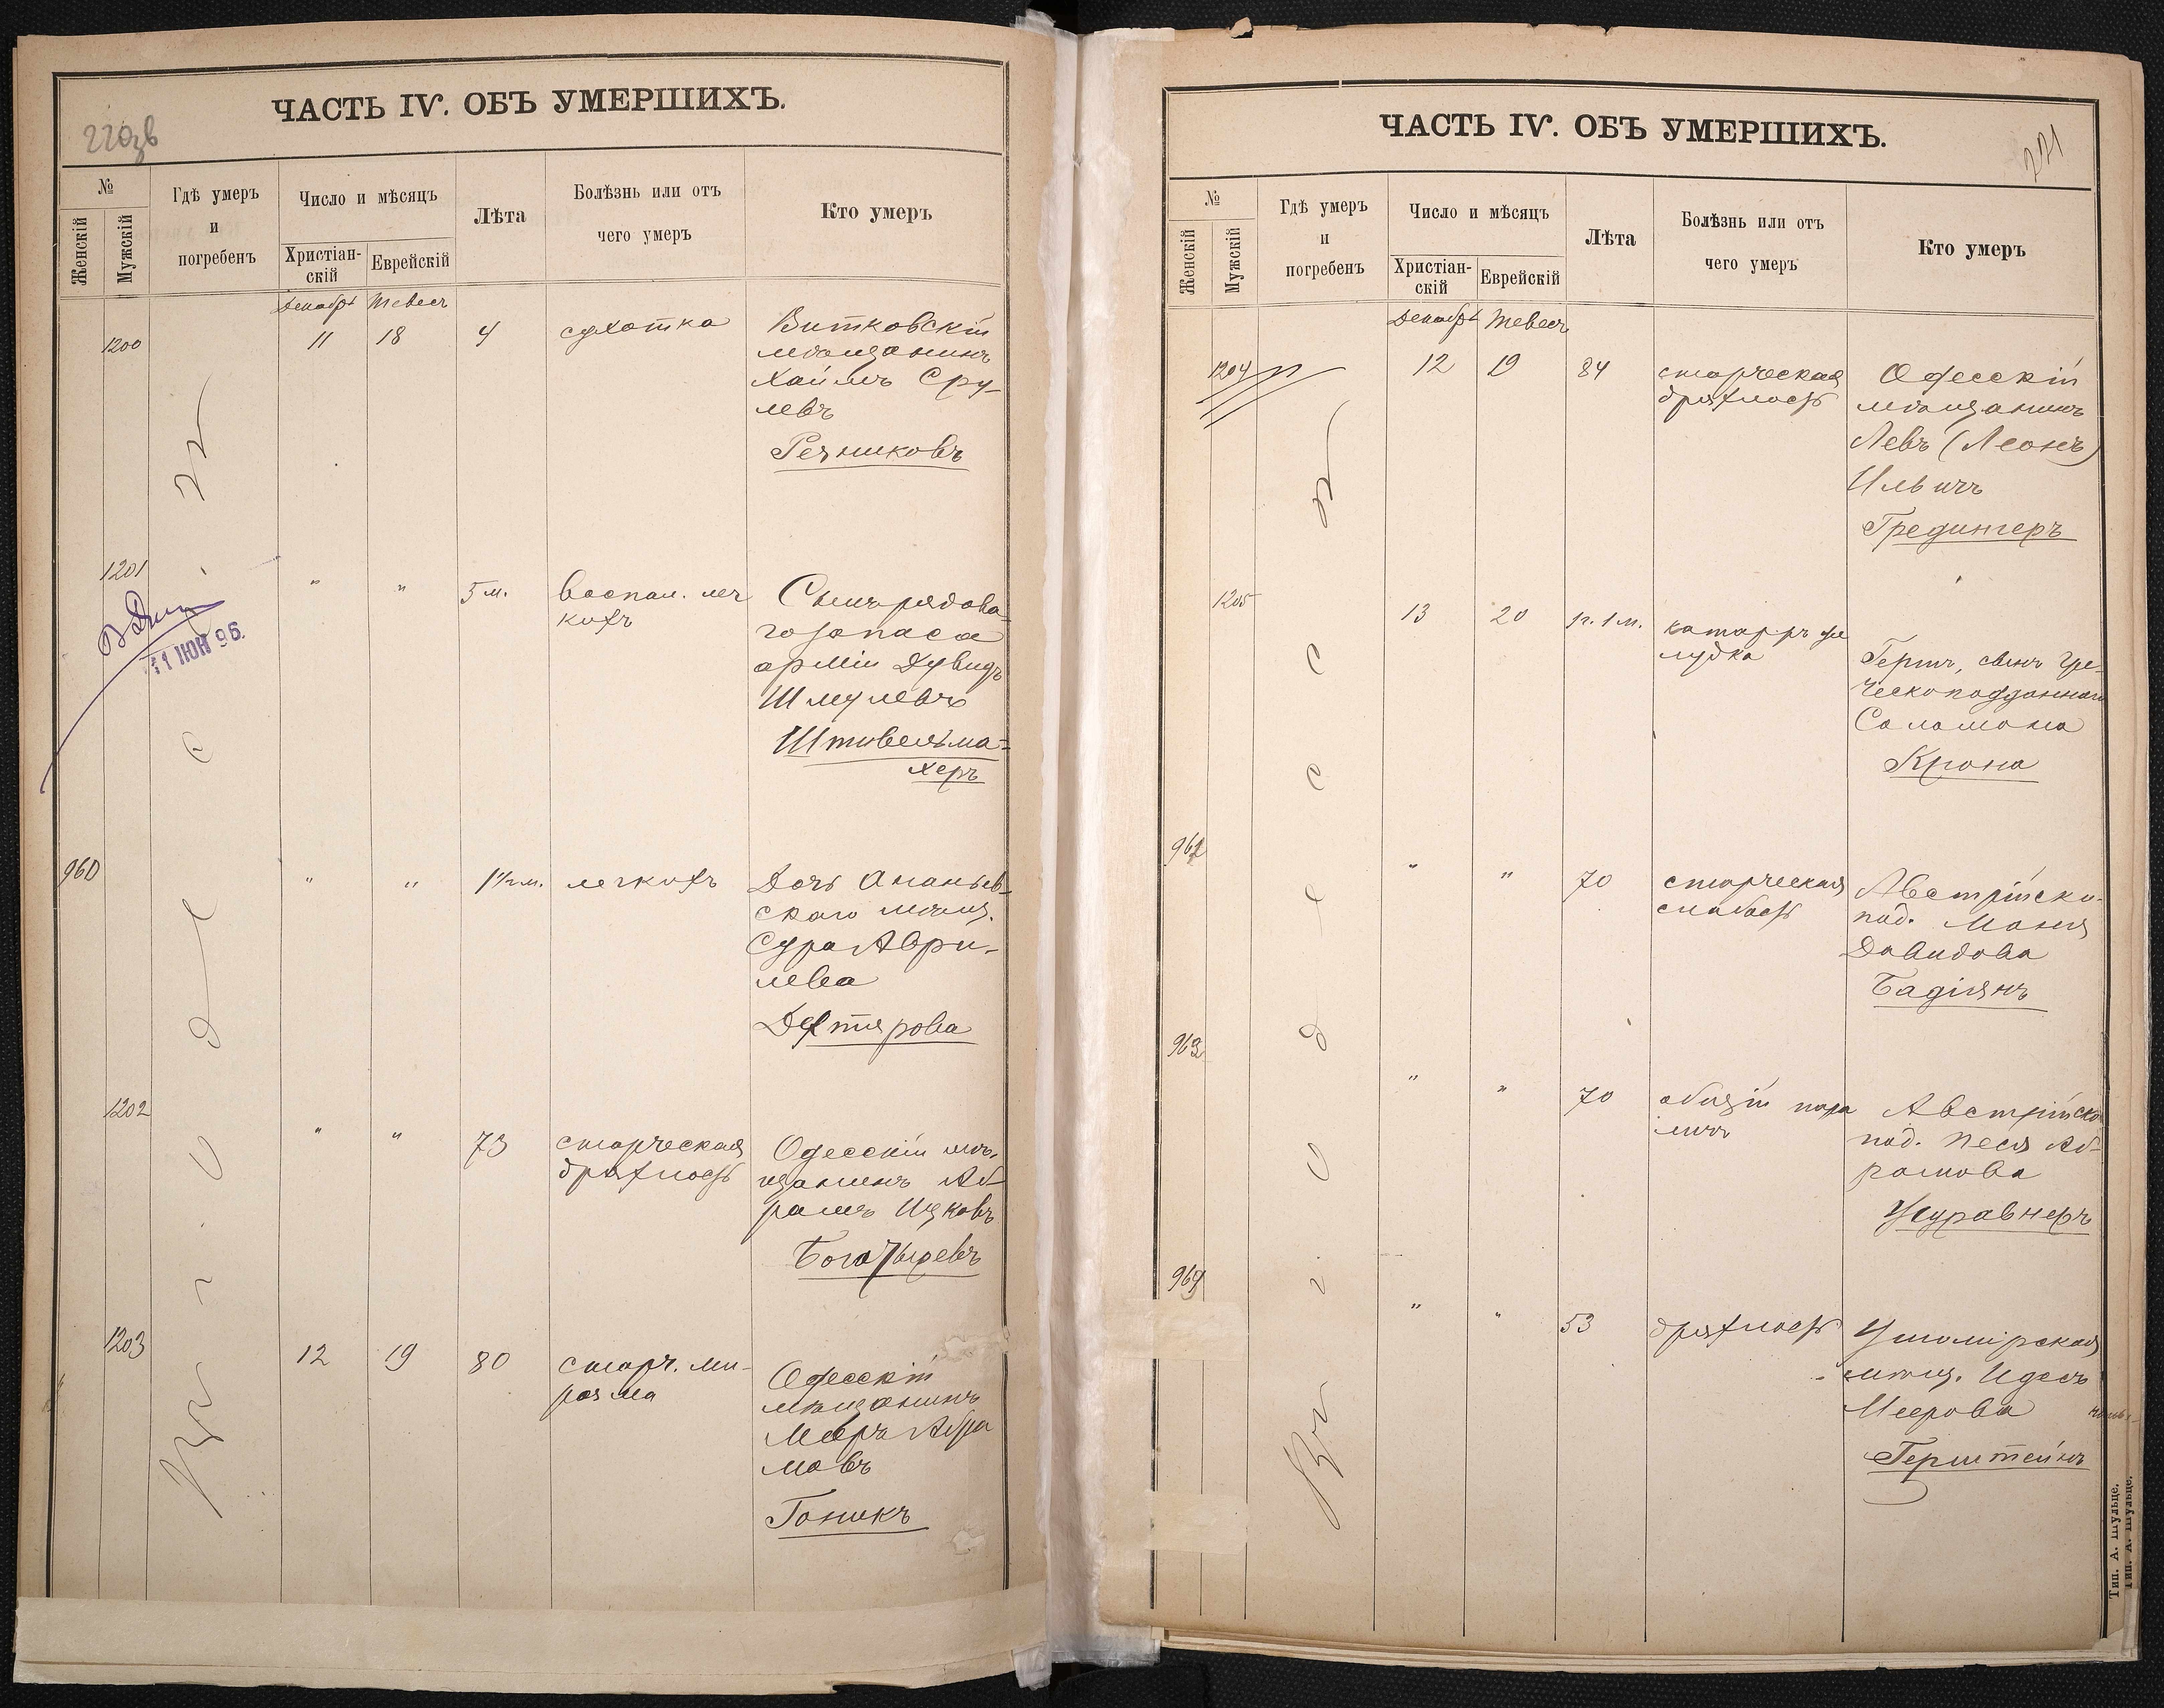 ЧАСТЬ IV. ОБЪ УМЕРШИХЪ.
220зв
№
Женскій
Мужскій
Гдѣ умеръ
и
погребенъ
Число и мѣсяцъ
Христіан-
скій
Еврейскій
Лѣта
Болѣзнь или отъ
чего умеръ
Кто умеръ
Декабрь Тевесъ
1200 11 18 4 сухотка
Витковскій
мѣщанинъ
Хаимъ Сру-
левъ
Резниковъ
1201 " " 5 м. Воспал. лег
кихъ
Сынъ рядова-
го запаса
арміи Дувидъ
Шмулевъ
Штивельма-
херъ
11 ІЮН 96.
960 " " 1½ м. легкихъ
Дочь Ананьев-
скаго мѣщ.
Сура Аври-
лева
Дехтярова
1202 " " 73 старческая
дряхлость
Одесскій мѣ-
щанинъ Аб-
рамъ Ицковъ
Богатыревъ
1203 12 19 80 старч. ма-
разма
Одесскій
мѣщанинъ
Мееръ Абра
мовъ
Гоникъ
Въ г. Одессѣ
ЧАСТЬ IV. ОБЪ УМЕРШИХЪ.
221
№
Женскій
Мужскій
Гдѣ умеръ
и
погребенъ
Число и мѣсяцъ
Христіан-
скій
Еврейскій
Лѣта
Болѣзнь или отъ
чего умеръ
Кто умеръ
Декабрь Тевесъ
1204 12 19 84 старческая
дряхлость
Одесскій
мѣщанинъ
Левъ (Леонъ)
Ильичъ
Гредингеръ
1205 13 20 1 г. 1 м. катарръ же
лудка
Герш, сынъ Гре-
ческоподданнаго
Соломона
Крона
962 " " 70 старческая
слабость
Австрійско-
под. Маня
Давидова
Бадіянъ
963 " " 70 общій пара
личъ
Австрійско
под. Песя Аб-
рамова
Журавнеръ
964 " " 53 дряхлость
Ушомірская
мѣщ. Идесъ
Меерова
Герштейнъ
Въ г. Одессѣ
Тип. А. Шульце.
Тип. А. Шульце.